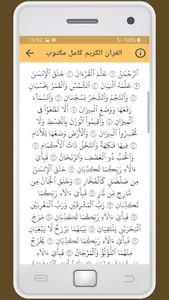 19:52
القرآن الكريم كامل مكتوب
ٱلرَّحۡمَٰنُ ١ عَلَّمَ ٱلۡقُرۡءَانَ ٢ خَلَقَ ٱلۡإِنسَٰنَ
٣ عَلَّمَهُ ٱلۡبَيَانَ ٤ ٱلشَّمۡسُ وَٱلۡقَمَرُ بِحُسۡبَانٖ
٥ وَٱلنَّجۡمُ وَٱلشَّجَرُ يَسۡجُدَانِ ٦ وَٱلسَّمَآءَ
رَفَعَهَا وَوَضَعَ ٱلۡمِيزَانَ ٧ أَلَّا تَطۡغَوۡاْ فِي
ٱلۡمِيزَانِ ٨ وَأَقِيمُواْ ٱلۡوَزۡنَ بِٱلۡقِسۡطِ وَلَا
تُخۡسِرُواْ ٱلۡمِيزَانَ ٩ وَٱلۡأَرۡضَ وَضَعَهَا لِلۡأَنَامِ
١٠ فِيهَا فَٰكِهَةٞ وَٱلنَّخۡلُ ذَاتُ ٱلۡأَكۡمَامِ
١١ وَٱلۡحَبُّ ذُو ٱلۡعَصۡفِ وَٱلرَّيۡحَانُ ١٢
فَبِأَيِّ ءَالَآءِ رَبِّكُمَا تُكَذِّبَانِ ١٣ خَلَقَ ٱلۡإِنسَٰنَ
مِن صَلۡصَٰلٖ كَٱلۡفَخَّارِ ١٤ وَخَلَقَ ٱلۡجَآنَّ مِن
مَّارِجٖ مِّن نَّارٖ ١٥ فَبِأَيِّ ءَالَآءِ رَبِّكُمَا تُكَذِّبَانِ
١٦ رَبُّ ٱلۡمَشۡرِقَيۡنِ وَرَبُّ ٱلۡمَغۡرِبَيۡنِ
١٧ فَبِأَيِّ ءَالَآءِ رَبِّكُمَا تُكَذِّبَانِ ١٨ مَرَجَ
ٱلۡبَحۡرَيۡنِ يَلۡتَقِيَانِ ١٩ بَيۡنَهُمَا بَرۡزَخٞ لَّا يَبۡغِيَانِ
٢٠ فَبِأَيِّ ءَالَآءِ رَبِّكُمَا تُكَذِّبَانِ